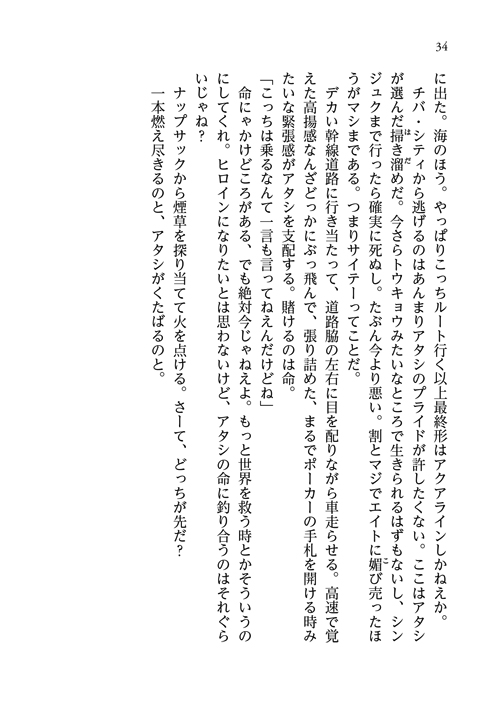 34
に出た。海のほう。やっぱりこっちルート行く以上最終形はアクアラインしかねえか。
　チバ・シティから逃げるのはあんまりアタシのプライドが許したくない。ここはアタシ
が選んだ掃き溜めだ。今さらトウキョウみたいなところで生きられるはずもないし、シン
ジュクまで行ったら確実に死ぬし。たぶん今より悪い。割とマジでエイトに媚び売ったほ
うがマシまである。つまりサイテーってことだ。
　デカい幹線道路に行き当たって、道路脇の左右に目を配りながら車走らせる。高速で覚
えた高揚感なんざどっかにぶっ飛んで、張り詰めた、まるでポーカーの手札を開ける時み
たいな緊張感がアタシを支配する。賭けるのは命。
「こっちは乗るなんて一言も言ってねえんだけどね」
　命にゃかけどころがある、でも絶対今じゃねえよ。もっと世界を救う時とかそういうの
にしてくれ。ヒロインになりたいとは思わないけど、アタシの命に釣り合うのはそれぐら
いじゃね？
　ナップサックから煙草を探り当てて火を点ける。さーて、どっちが先だ？
　一本燃え尽きるのと、アタシがくたばるのと。